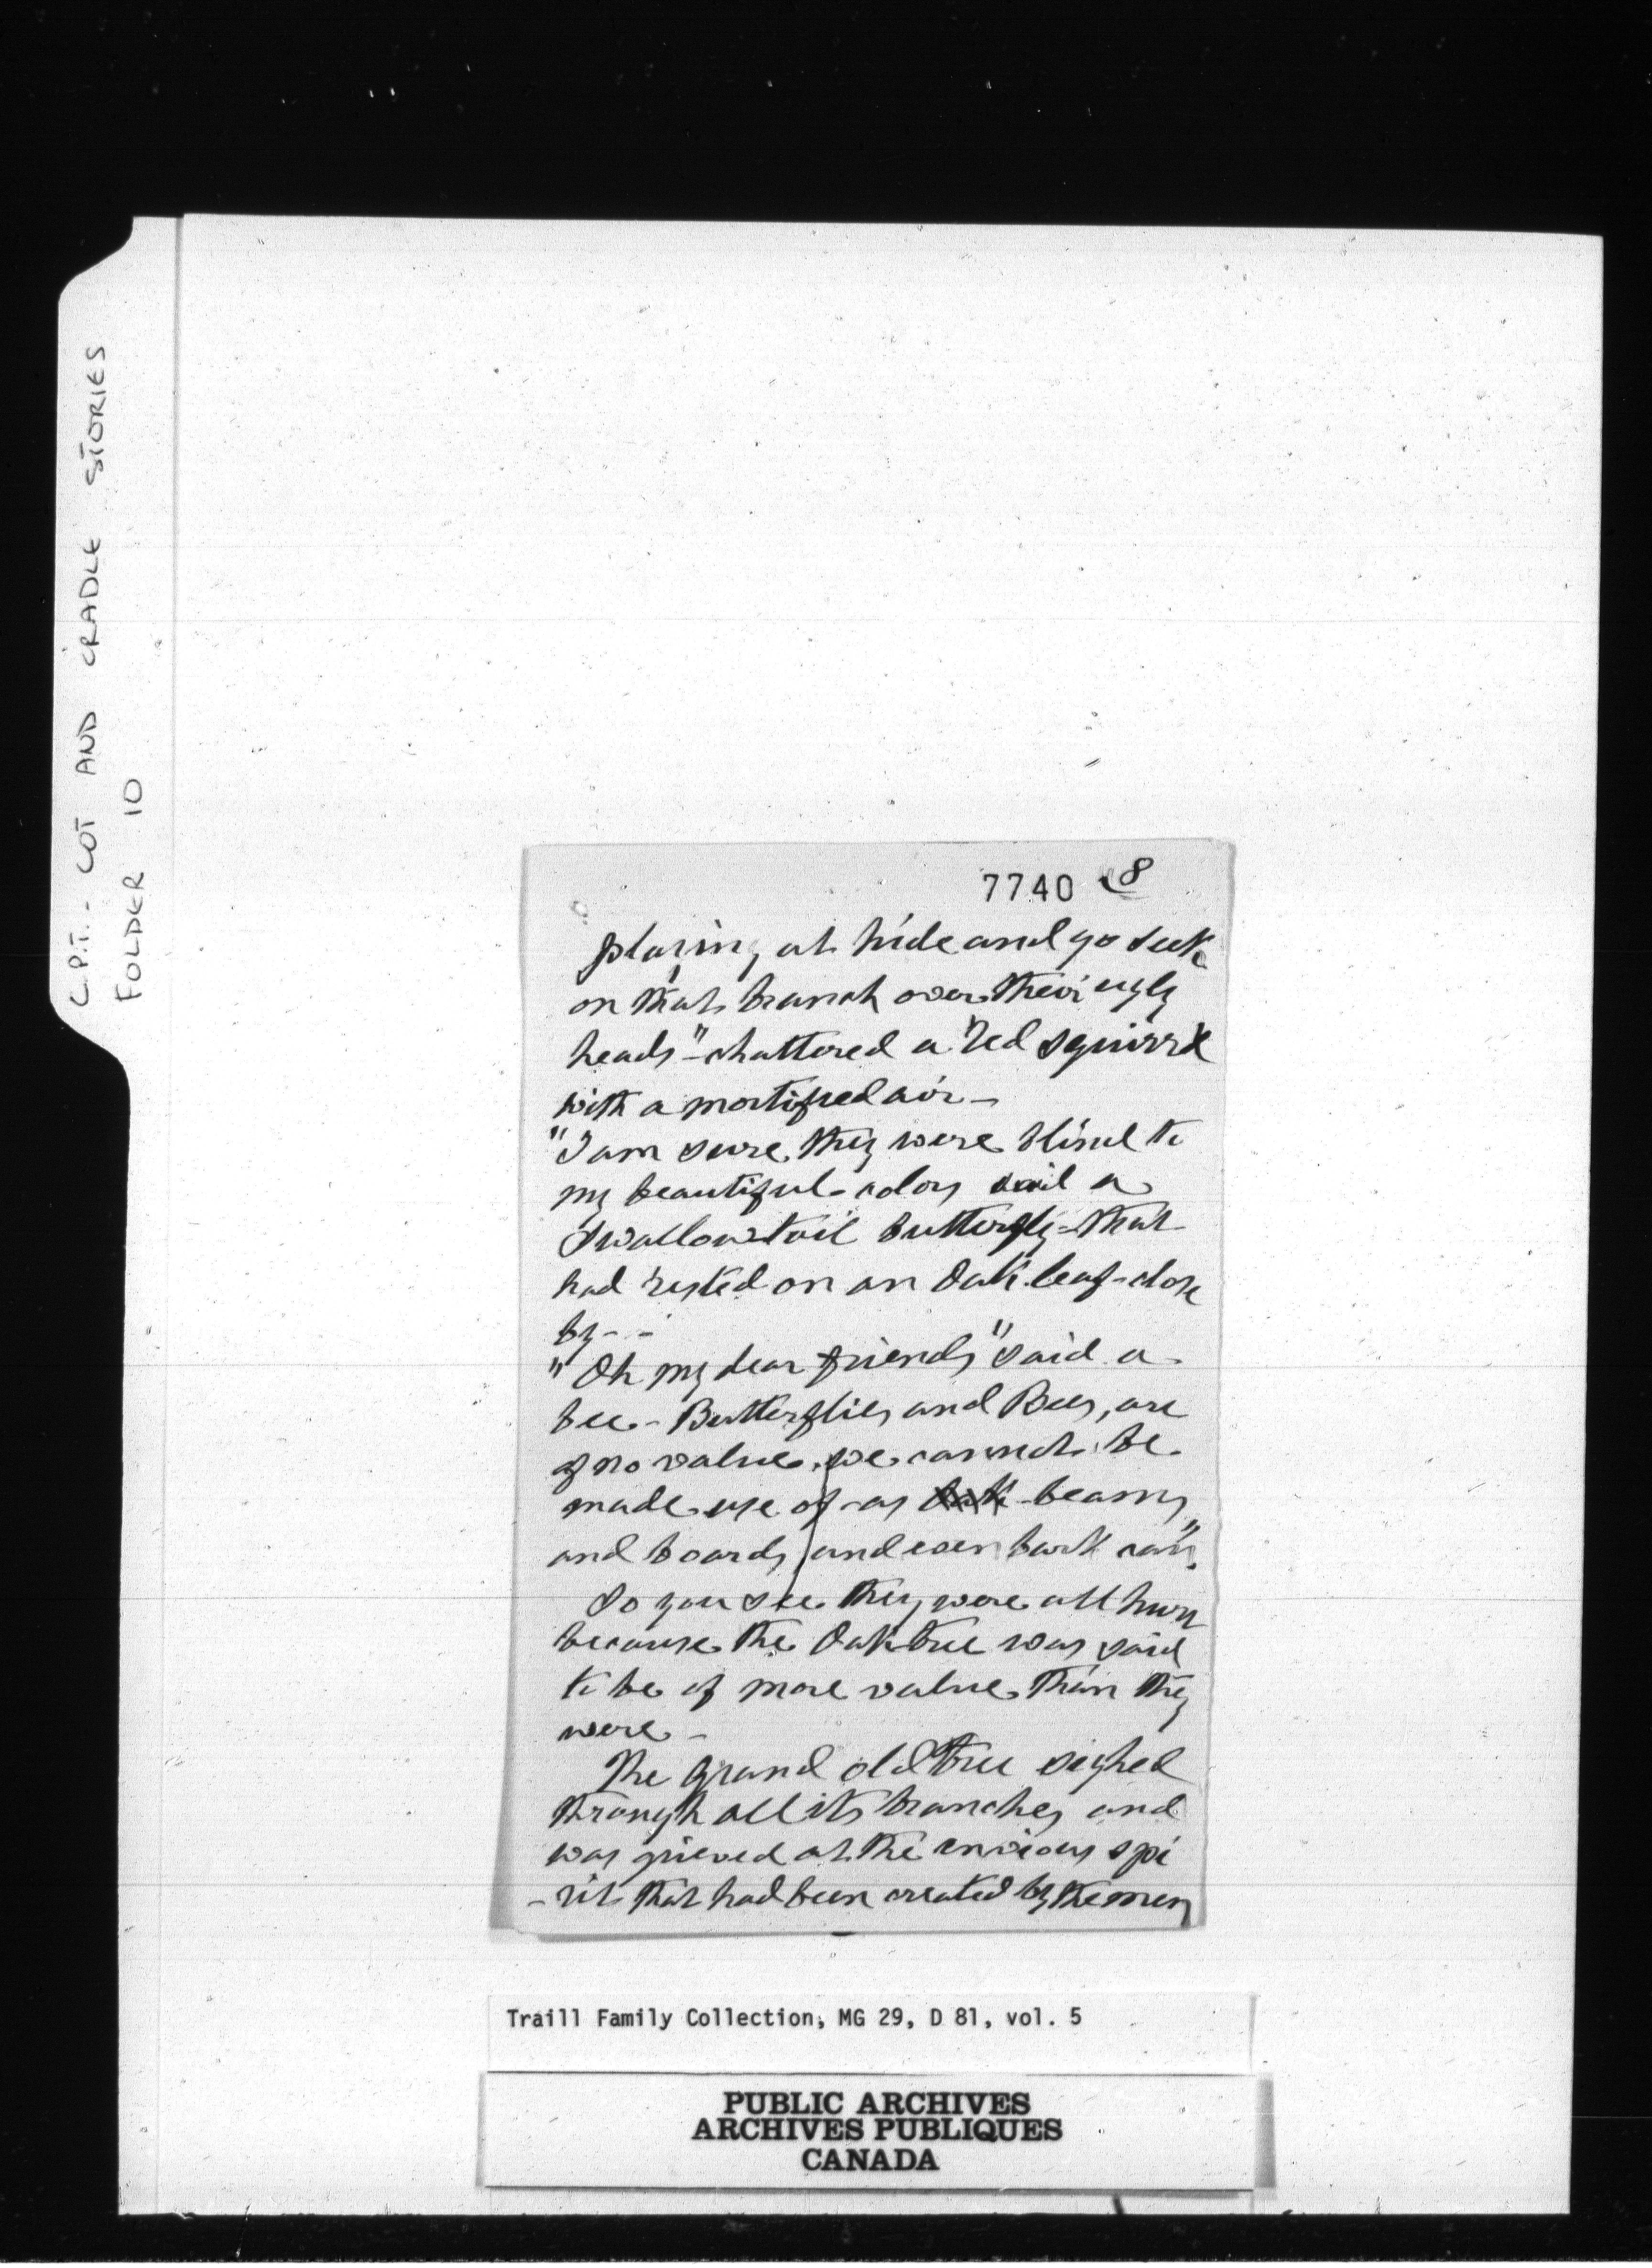 C.P.T. - COT AND CRADLE STORIES
FOLDER 10
7740 8
playing at hide and go seek
on that branch over their ugly
heads" - chattered a red squirrel
with a mortified air -
"I am sure they were blind to
my beautiful colors said a
Swallowtail butterfly - that
had rested on an Oak leaf - close
by - -
"Oh my dear friends" said a
bee - Butterflies and Bees, are
of no value, we cannot be
made use of - as beams
and boards, and even bark can".
So you see they were all
because the Oak tree was said
to be of more value than they
were -
The grand old tree sighed
through all its branches and
was grieved at the envious spi
- rit that had been created by the men
Traill Family Collection, MG 29, D 81, vol. 5
PUBLIC ARCHIVES
ARCHIVES PUBLIQUES
CANADA